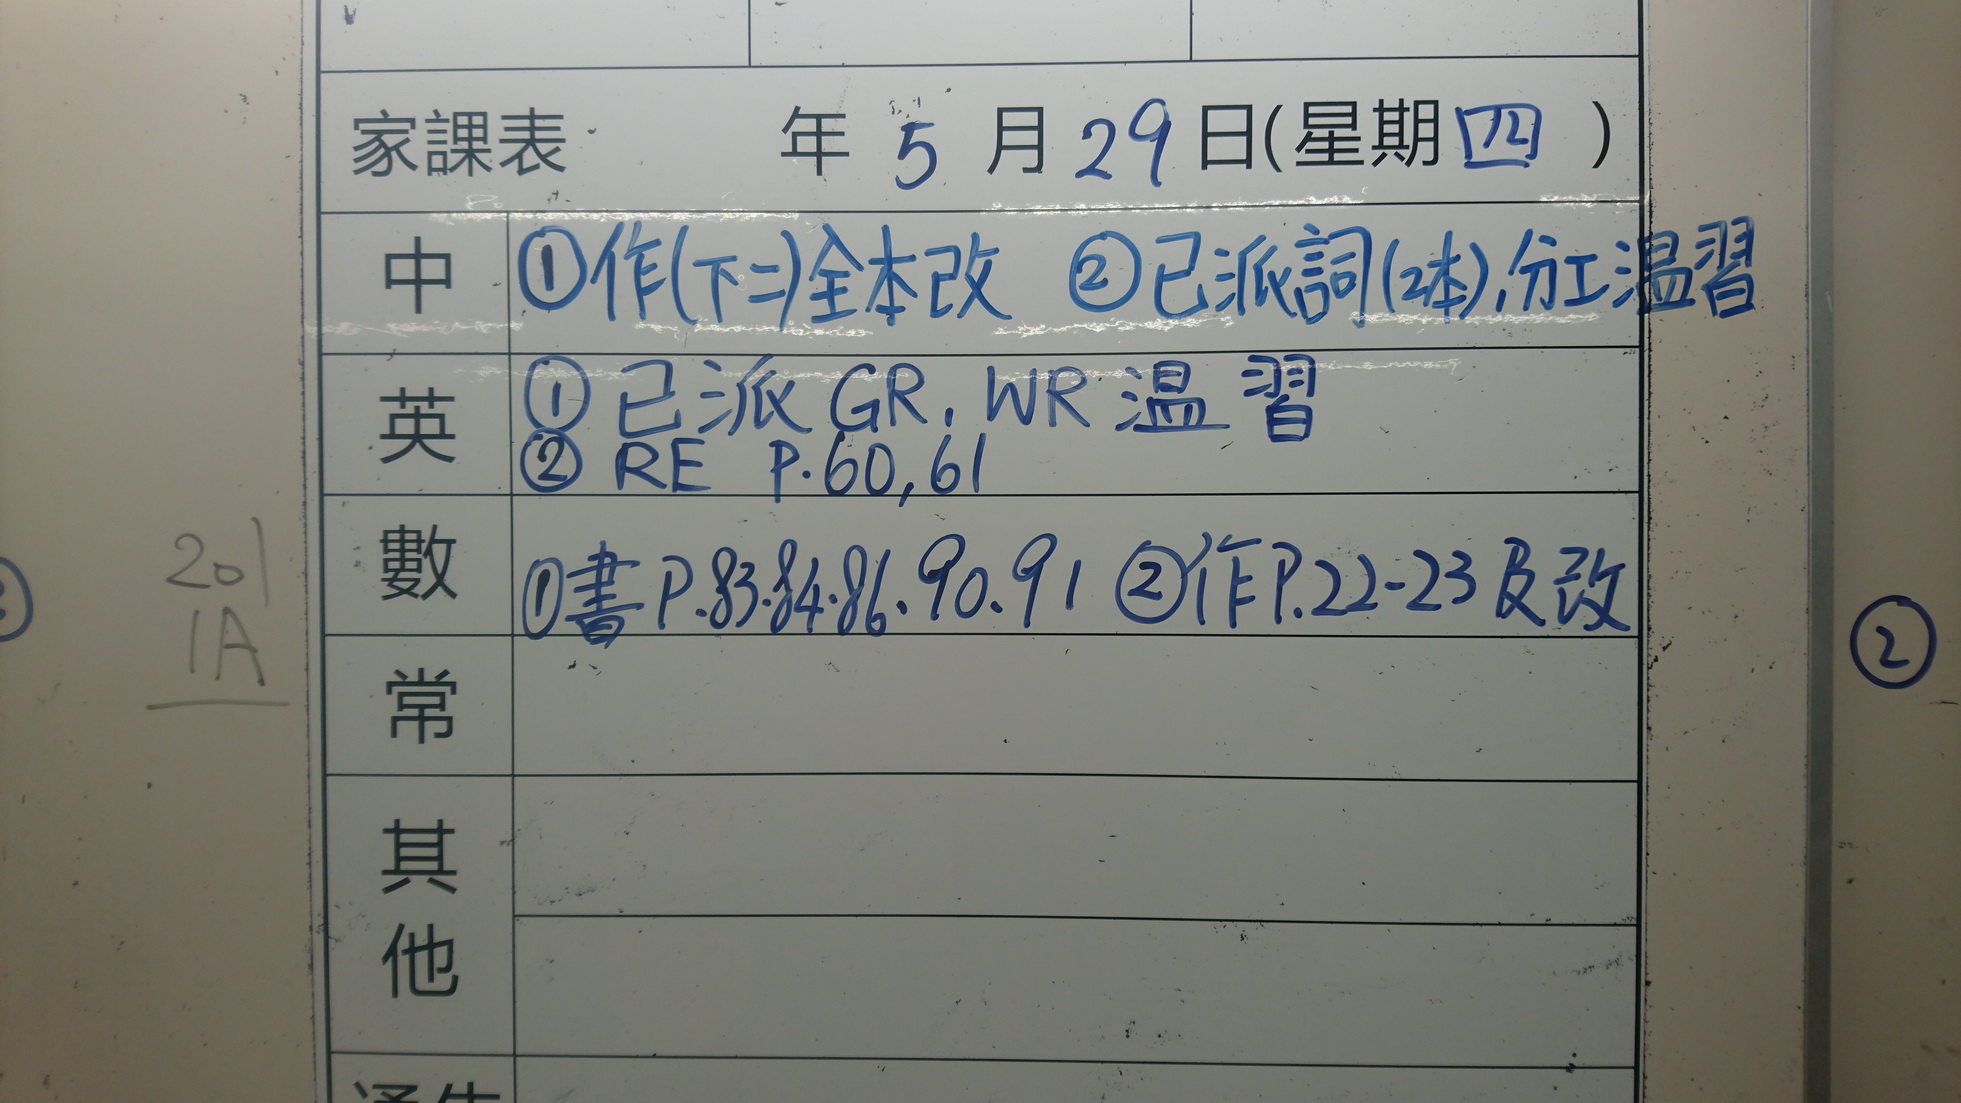 家課表 年 5 月 29 日(星期 四 )
中 ①作(下二)全本改 ②已派詞(2本),分工温習
英 ①已派 GR, WR 温習
② RE P.60,61
數 ①書 P.83.84.86.90.91 ②作P.22-23及改
201
1A
②
常
其
他